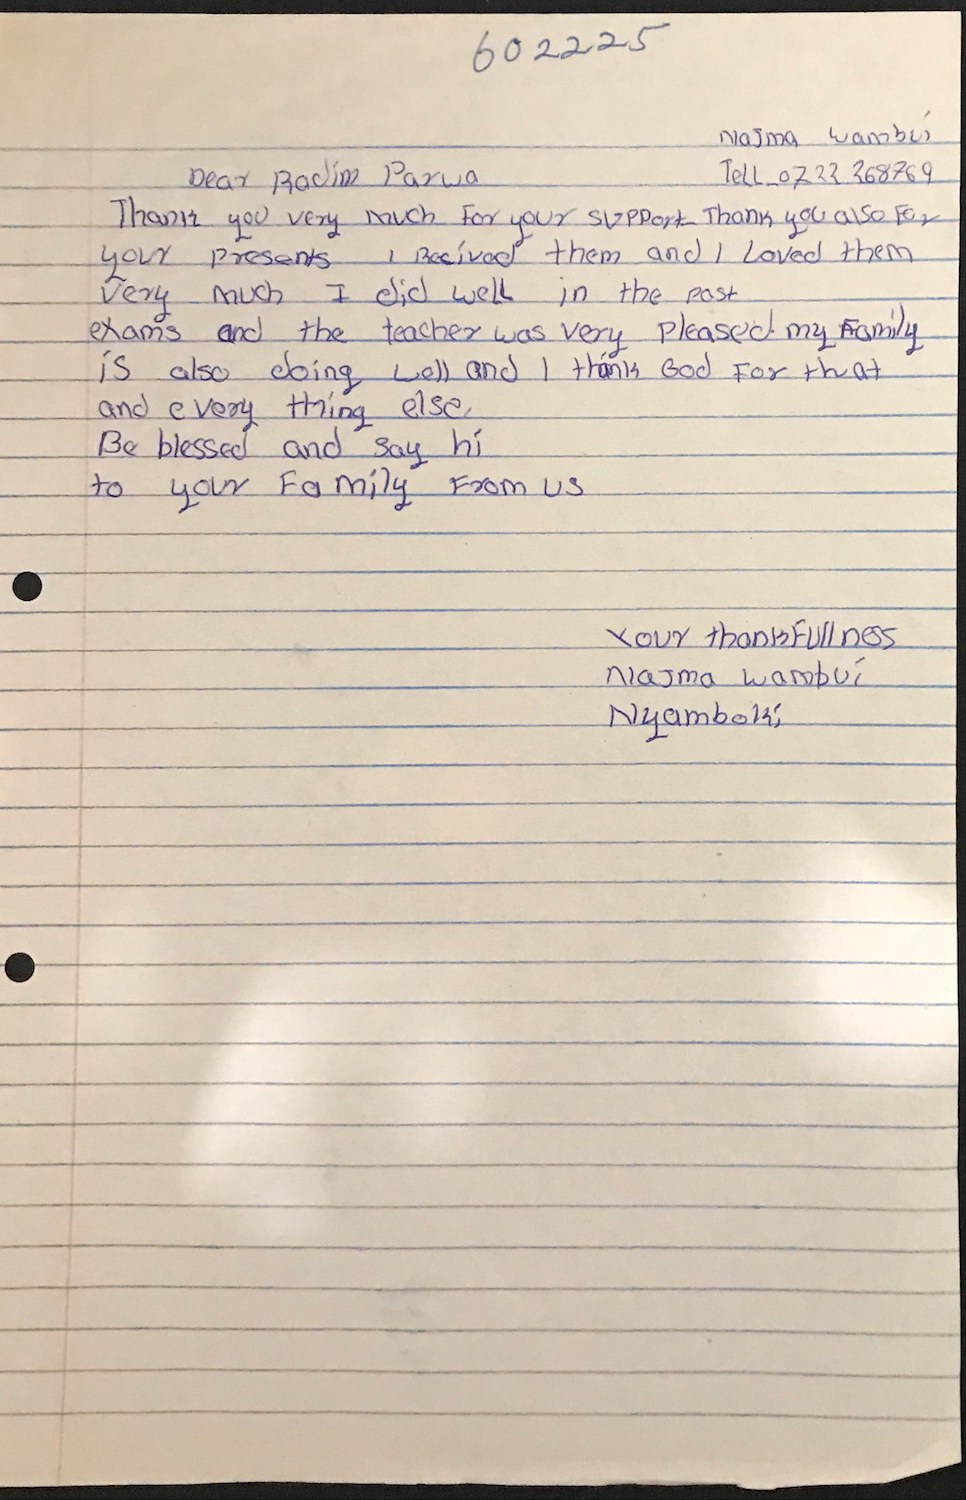 602225
Najma Wambui
Dear Radim Parwa Tell_0722 268769
Thank you very much For your support Thank you also For
your presents I Recived them and I Loved them
Very much I did well in the past
exams and the teacher was very pleased my Family
is also doing well and I thank God For that
and every thing else.
Be blessed and say hi
to your Family From us
Your thankFullness
Najma Wambui
Nyamboki